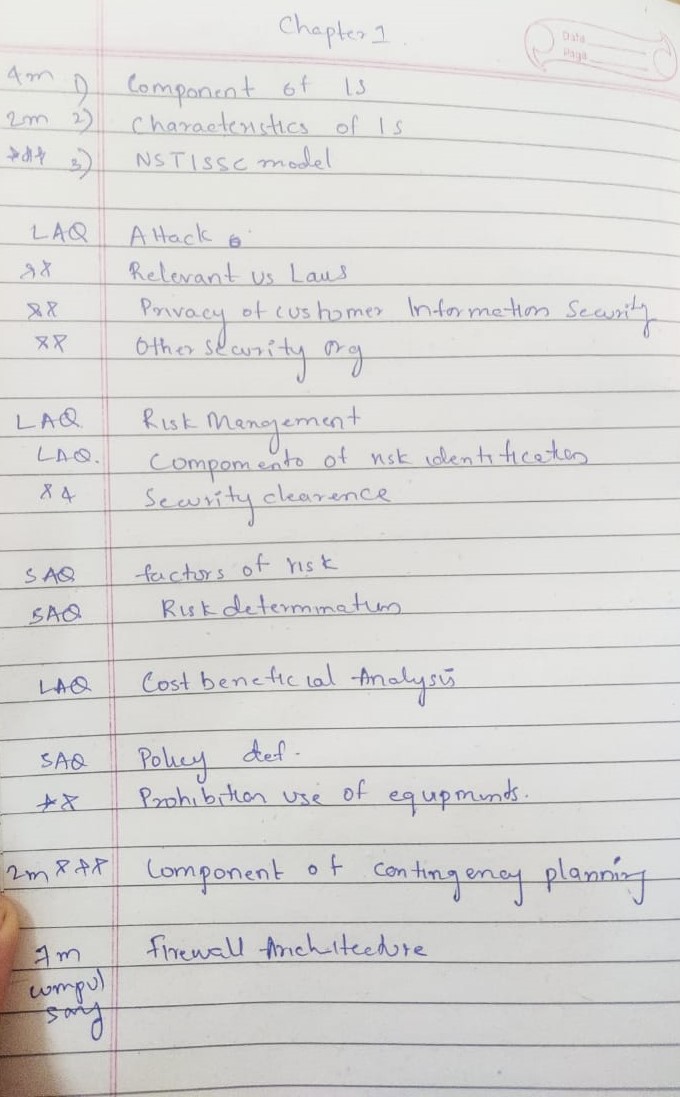 Chapter 1
Date
Page
4m 1) Component of IS
2m 2) Characteristics of IS
*** 3) NSTISSC model
LAQ Attack
** Relevant us Laws
** Privacy of customer Information Security
** Other security org
LAQ Risk Mangement
LAQ. Compomento of risk identification
** Security clearence
SAQ factors of risk
SAQ Risk determination
LAQ Cost beneficial Analysis
SAQ Policy def.
** Prohibition use of equpments.
2m *** Component of contingency planning
7m firewall Architecture
compul
sary